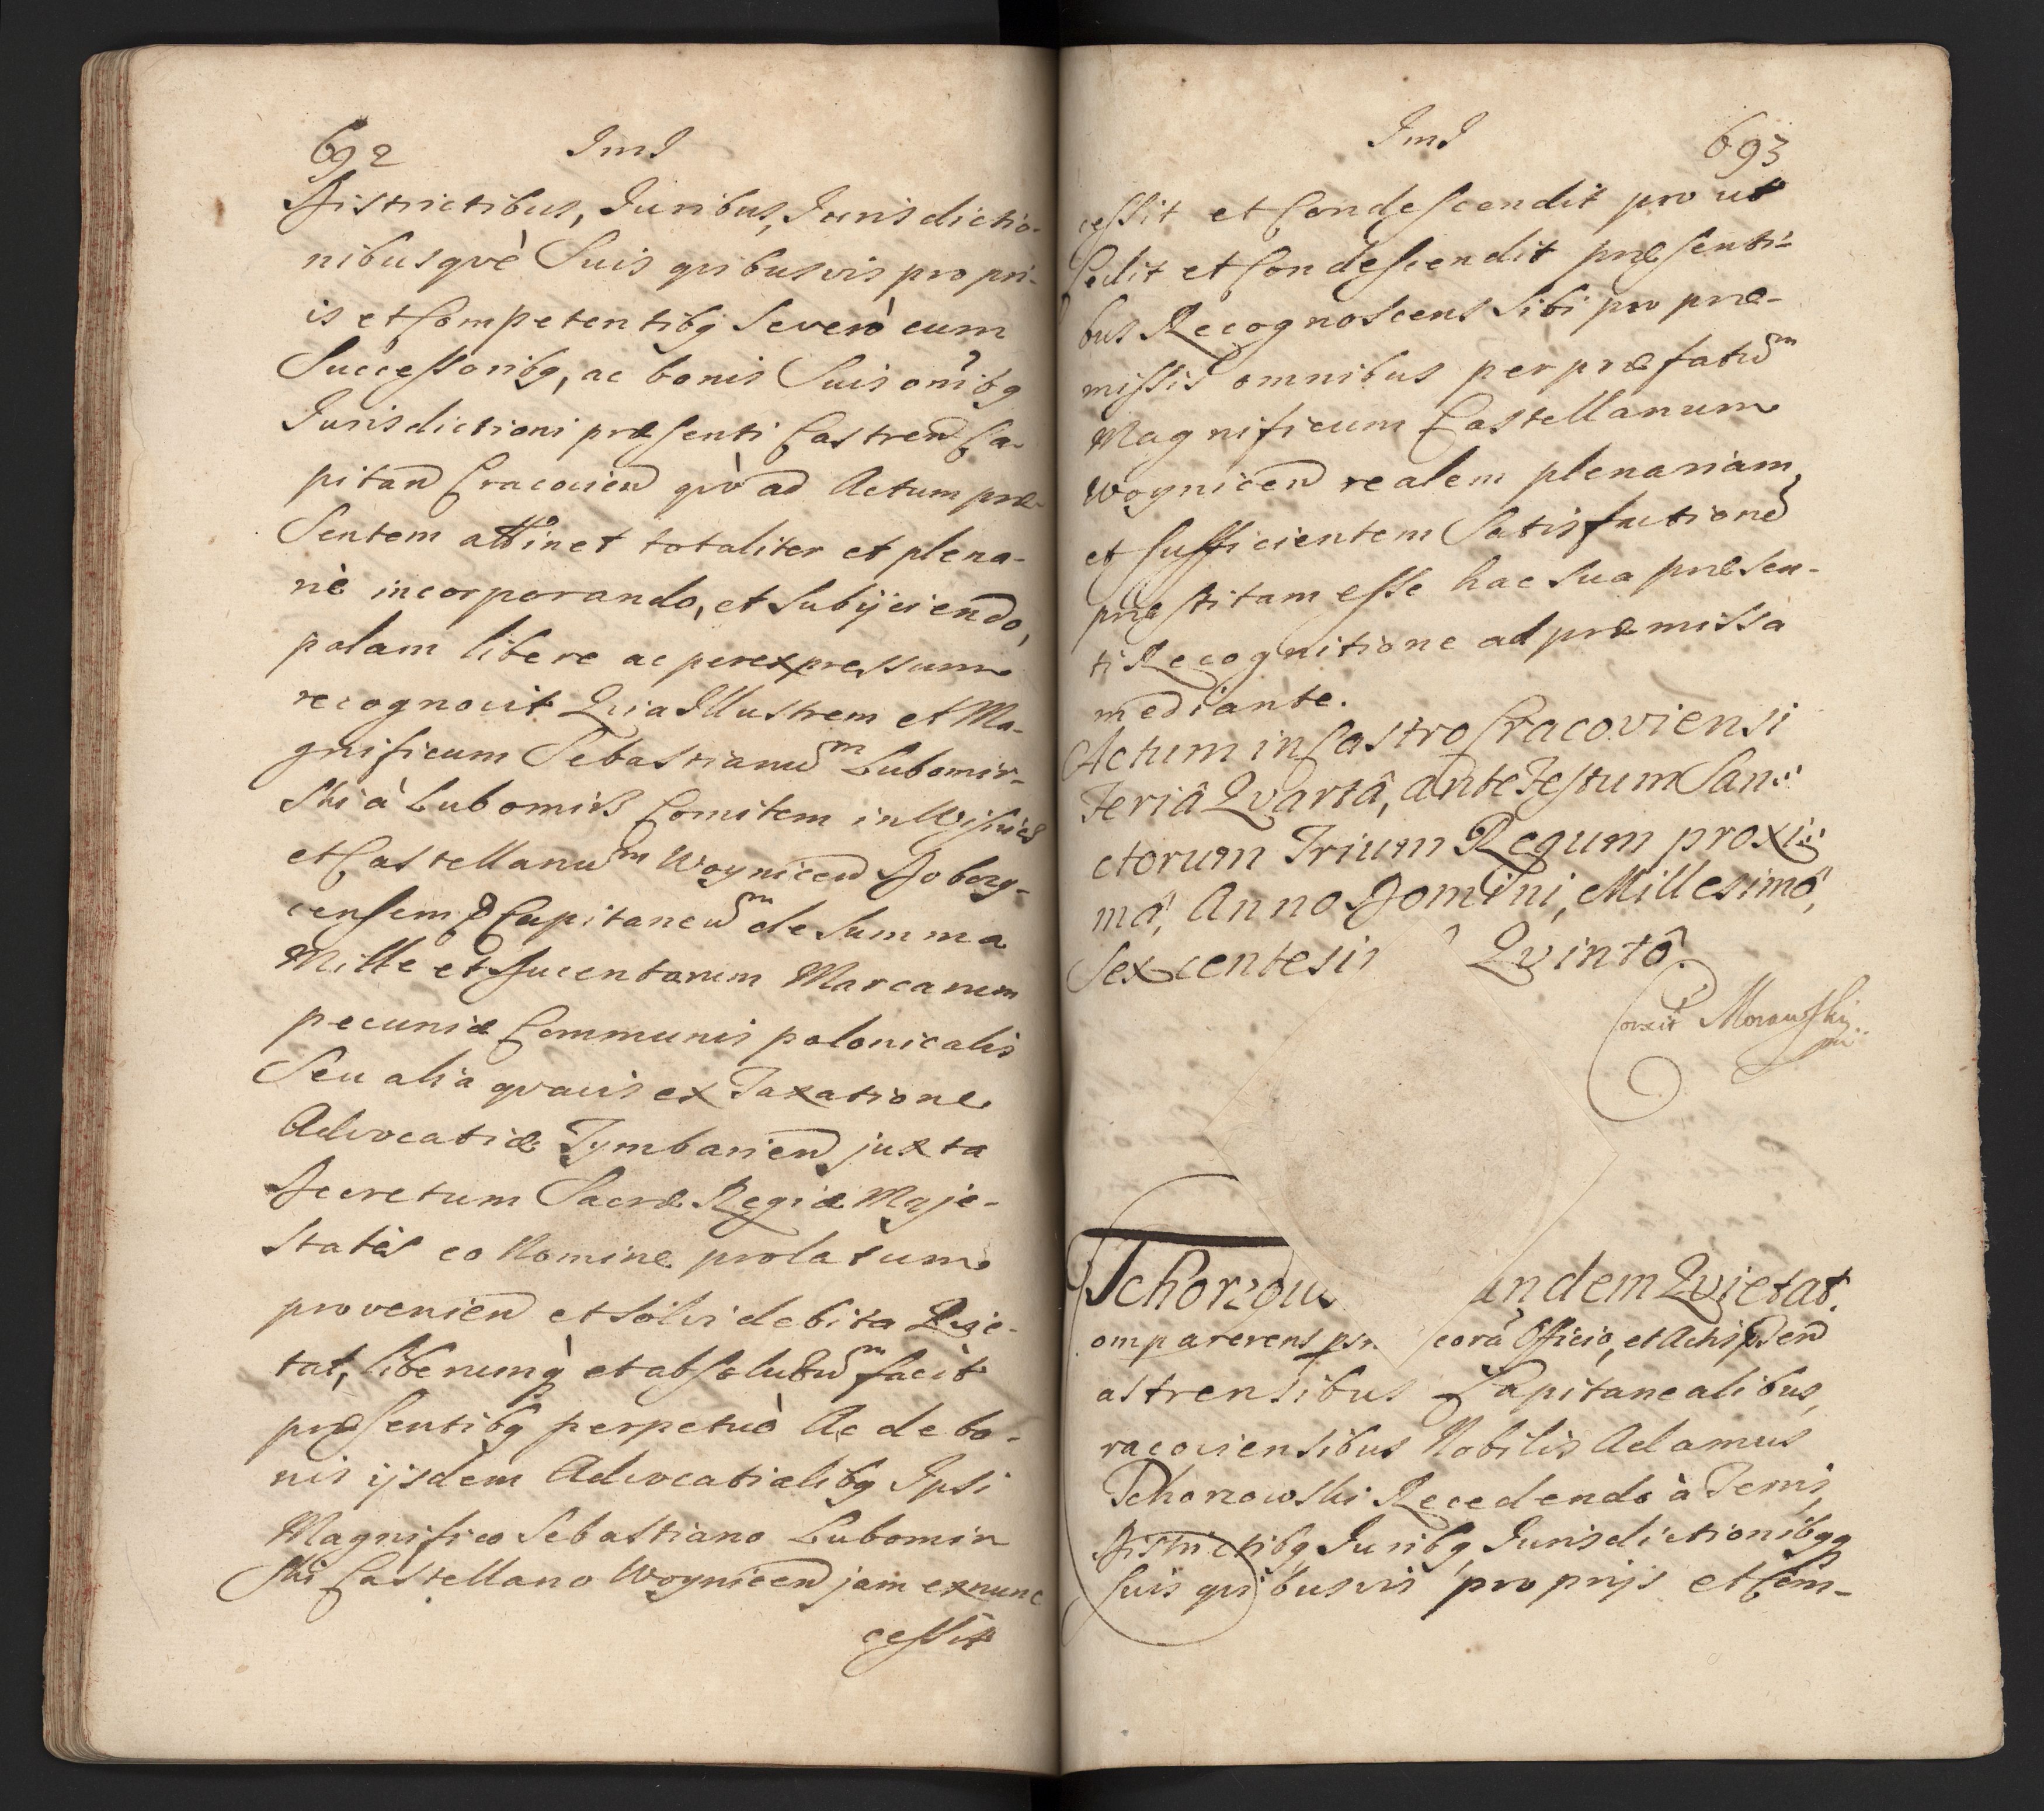 692 JmJ
Districtibus, Juribus, Jurisdictio-
nibusqvè Suis qvibusvis propri-
is et Competentibq Severò cum
Successoribq, ac bonis Suis om̃ibq
Jurisdictioni præsenti Castren Ca-
pitan Cracovien qvò ad Actum præ-
Sentem attinet totaliter et plena-
riè incorporando, et Subijciendo,
palam libere ac per expressum
recognovit Qvia Illustrem et Ma-
gnificum Sebastianum Lubomir-
ski à Lubomirz Comitem in Wisnicz
et Castellanum Woynicen Dobczy-
censemq Capitaneum de Summa
Mille et Ducentarum Marcarum
pecuniæ Communis polonicalis
Seu alia qvavis ex Taxatione
Advocatiæ Tymbarien juxta
Decretum Sacræ Regiæ Maje-
statis eo Nomine prolatum
provenien et Solvi debita Qvie-
tat, liberumq̀ et absolutum facit
præsentibq perpetuò Ac de bo-
nis ijsdem Advocatialibq Ipsi
Magnifico Sebastiano Lubomir
ski Castellano Woynicen jam ex nunc
cessit
JmJ 693
cessit et Condescendit pro ut
Cedit et Condescendit præsenti-
bus Recognoscens Sibi pro præ-
missis omnibus per præfatum
Magnificum Castellanum
Woynicen realem plenariam,
et Sufficientem Satisfactione
præstitam esse hac Sua præsen-
ti Recognitione ad præmissa
mediante.
Actum in Castro Cracoviensi
Feriâ Qvartâ, ante Festum San-
ctorum Trium Regum proxi-
mâ, Anno Domini, Millesimô,
Sexcentesi Qvintô.
Correxit Morawski
mp
Tchorzow andem Qvietat.
omparerens pr corã Officio, et Actis Den
astrensibus Capitanealibus,
racoviensibus Nobilis Adamus
Tchorzowski Recedendo à Terris,
Districtibq Juribq, Jurisdictionibqq
Suis qvibusvis proprijs et Com-